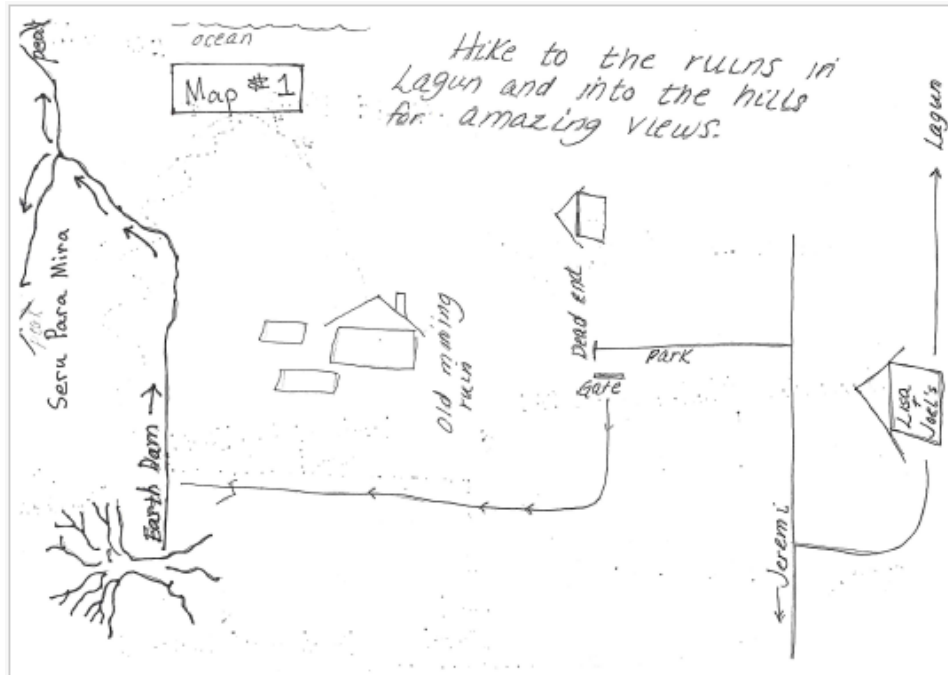 ocean
Map #1
Hike to the ruins in
Lagun and into the hills
for amazing views.
peak
Seru Para Mira
Earth Dam
Old mining
ruin
Dead end
Park
Gate
Jeremi
Lisa
+
Joel's
Lagun